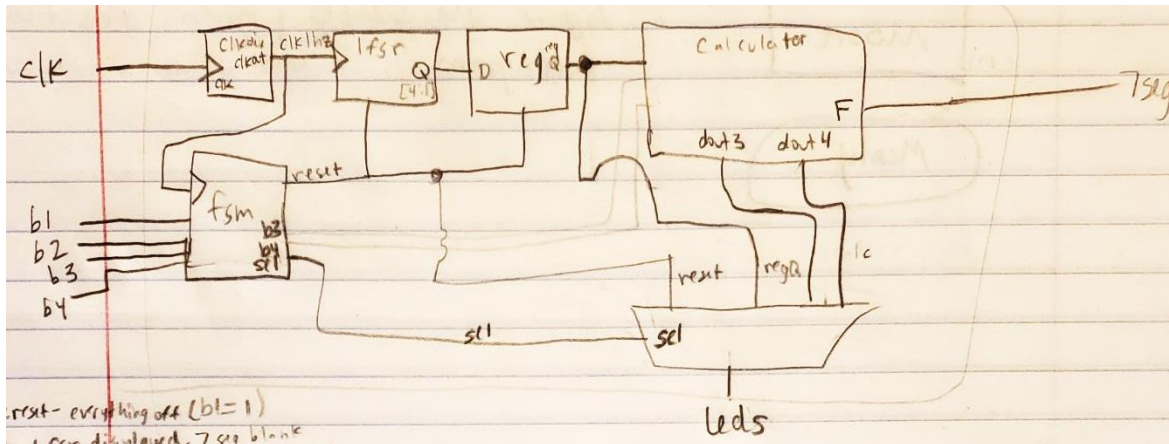 clk
clkdiv
clkout
clk
clk1hz
lfsr
Q
[4:1]
D
regQ
req
Q
Calculator
F
7seg
dout3
dout4
reset
fsm
b1
b2
b3
b4
b3
b4
sel
reset
regQ
sel
sel
leds
reset - everything off (b1=1)
lfsr displayed, 7 seg blank